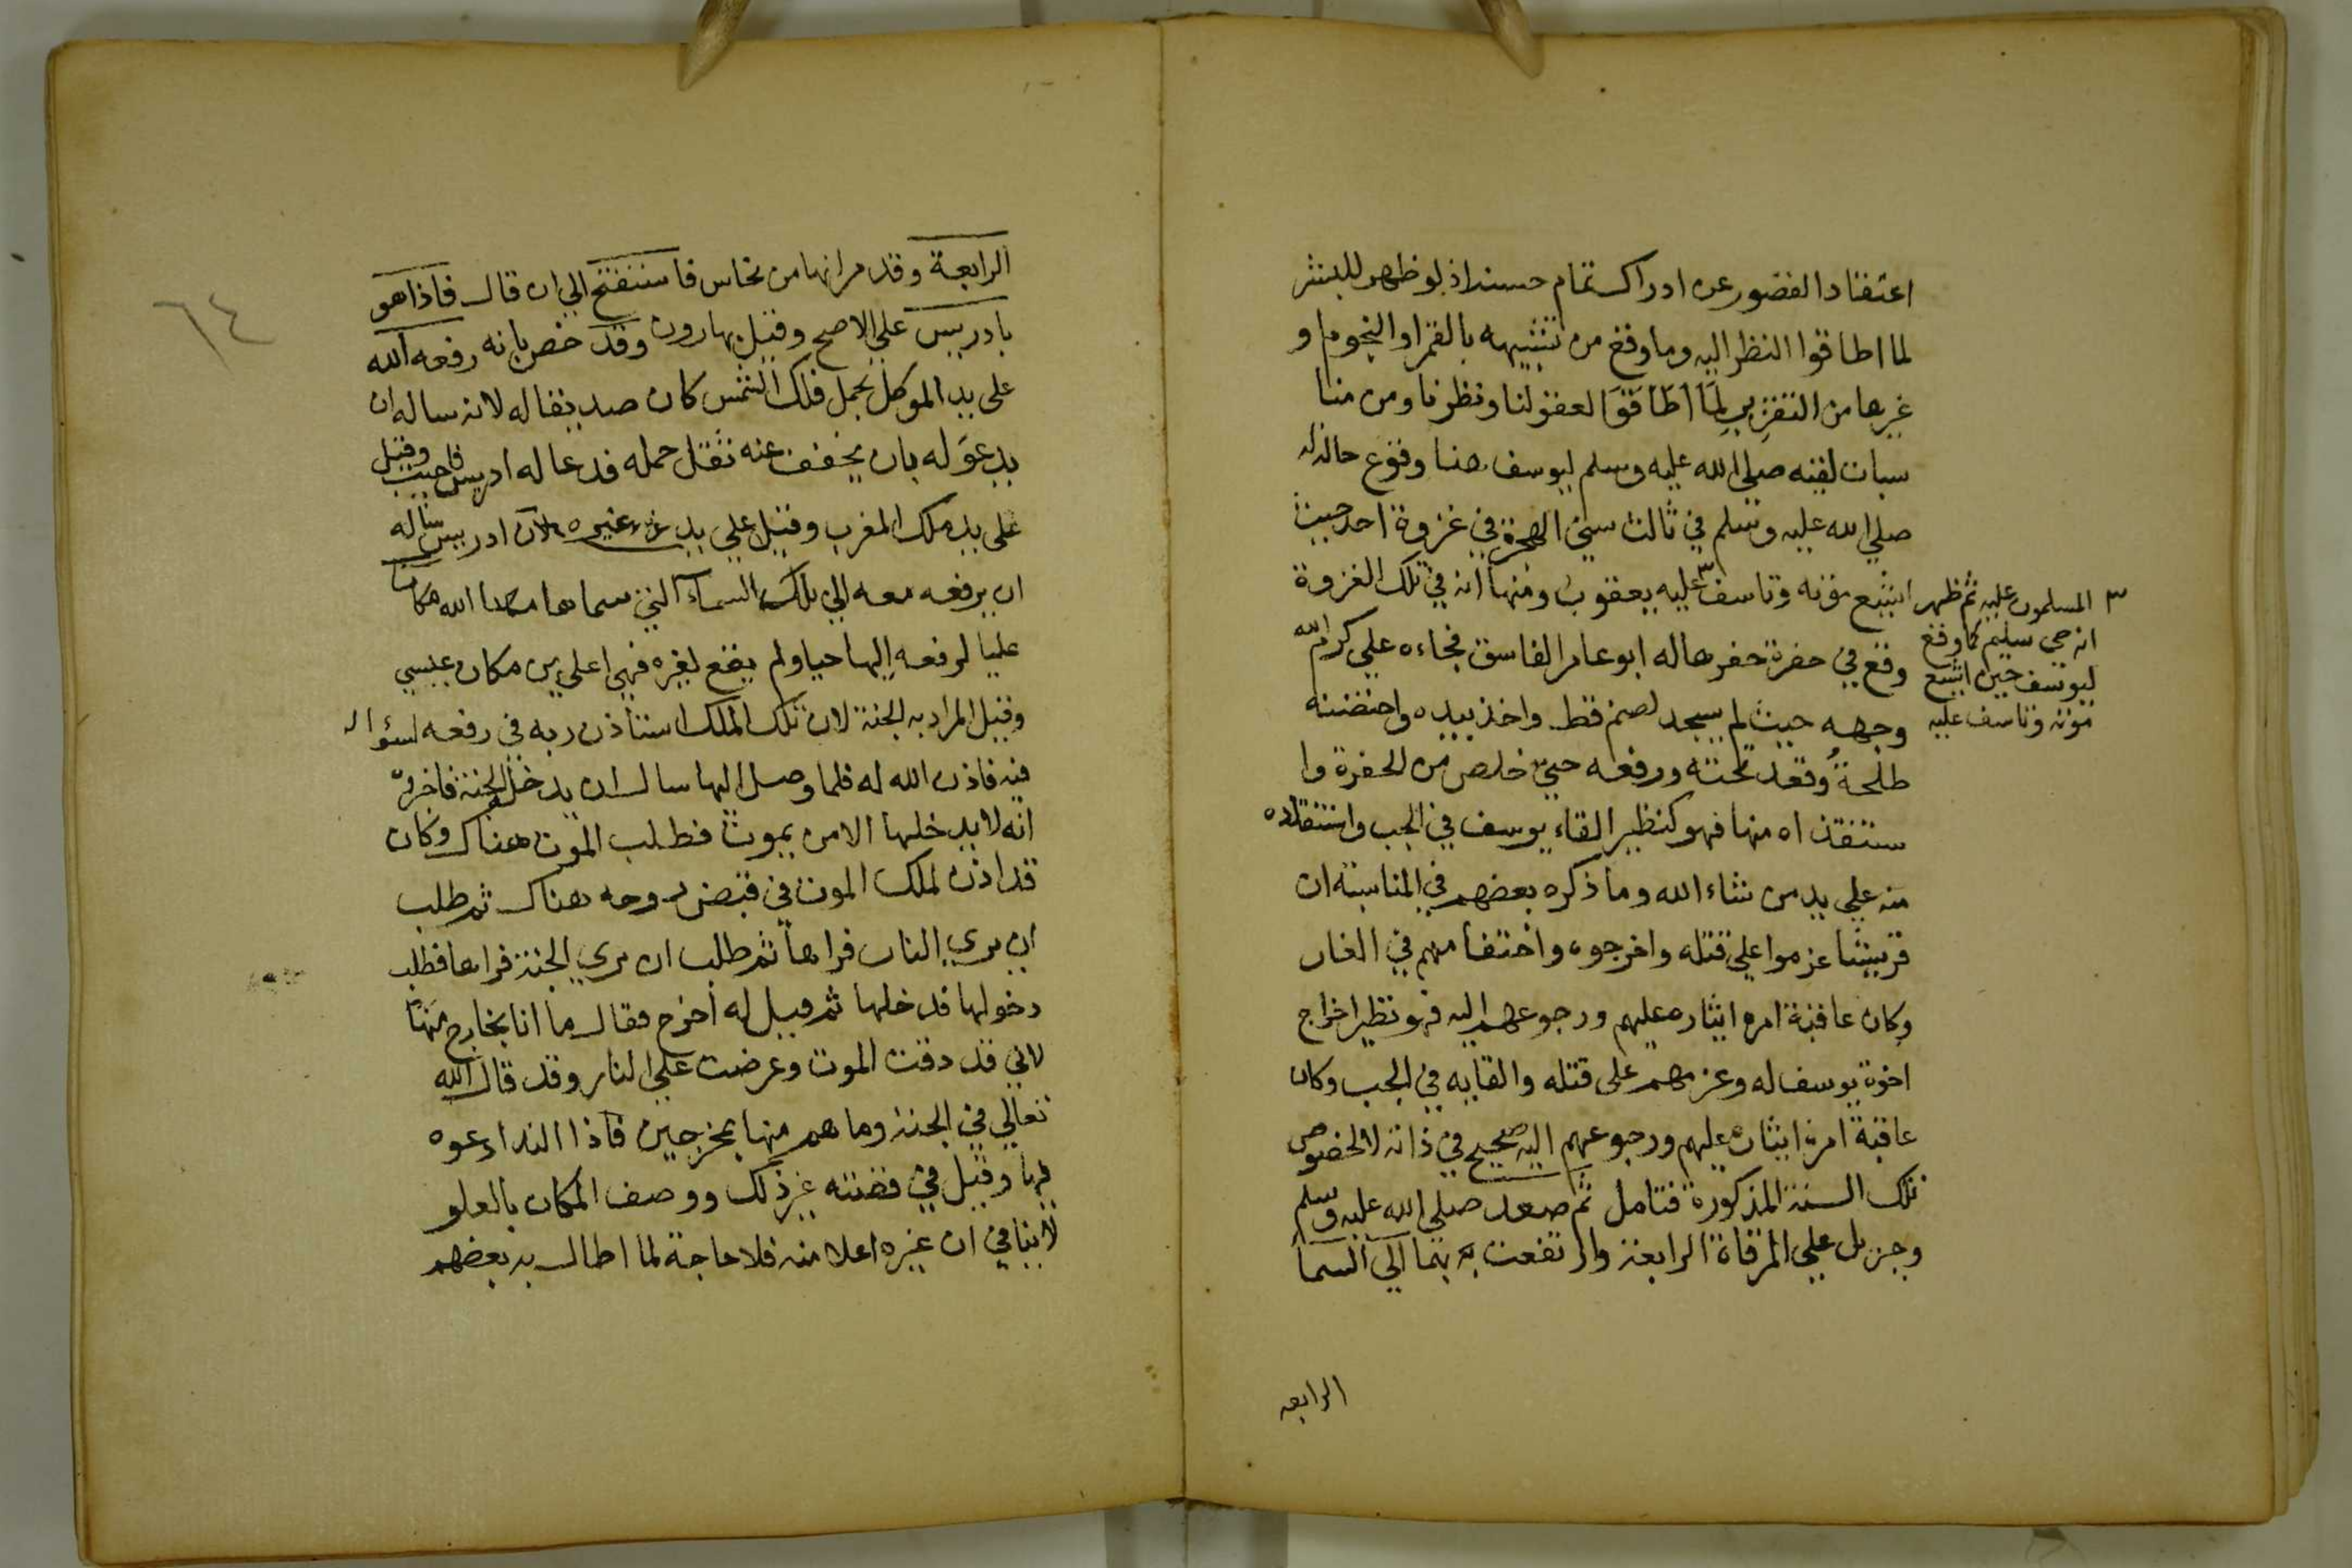 اعتقاد القصور عن ادراك تمام حسنه اذ لو ظهر للبشر
لما اطاقوا النظر اليه وما وقع من تشبيهه بالقمر او النجوم او
غيرها من التقريب لما اطاقوا لعقولنا ونظرنا ومن منا
سبات لقيه صلى الله عليه وسلم ليوسف هنا وقوع حاله له
صلى الله عليه وسلم في ثالث سني الهجرة في غزوة احد حيث
اشيع موته وتاسف ٣ عليه يعقوب ومنها انه في تلك الغزوة
وقع في حفرة حفرها له ابو عامر الفاسق فجاءه علي كرم الله
وجهه حيث لم يسجد لصنم قط واخذ بيده واحتضنه
طلحة وقعد تحته ورفعه حتي خلص من الحفرة وا
ستنقذاه منها فهو كنظير القاء يوسف في الجب واستنقاذه
منه علي يد من شاء الله وما ذكره بعضهم في المناسبة ان
قريشا عزموا علي قتله واخرجوه واختفا منهم في الغار
وكان عاقبة امره ايثاره عليهم ورجوعهم اليه فهو نظير اخراج
اخوة يوسف له وعزمهم على قتله والقايه في الجب وكان
عاقبة امره ايثاره عليهم ورجوعهم اليه صحيح في ذاته لا لخصوص
تلك السنة المذكورة فتامل ثم صعد صلى الله عليه وسلم
وجبريل علي المرقاة الرابعة وارتفعت بهما الي السما
الرابعه
٣ المسلمون عليه ثم ظهر
انه حي سليم كما وقع
ليوسف حين اشيع
موته وتاسف عليه
٦٤
الرابعة وقد مر انها من نحاس فاستفتح الي ان قال فاذا هو
بادريس علي الاصح وقيل بهارون وقد خص بانه رفعه الله
على يد الموكل بحمل فلك الشمس كان صديقا له لانه ساله ان
يدعو له بان يخفف عنه ثقل حمله فدعا له ادريس فاجيب وقيل
على يد ملك المغرب وقيل علي يد غيره لان ادريس ساله
ان يرفعه معه الي تلك السماء التي سماها الله مكانا
عليا لرفعه اليها حيا ولم يقع لغيره فهي اعلى من مكان عيسي
وقيل المراد به الجنة لان تلك الملك استأذن ربه في رفعه لسؤاله
فيه فاذن الله له فلما وصل اليها سال ان يدخل الجنة فاخبره
انه لا يدخلها الا من يموت فطلب الموت هناك وكان
قد اذن لملك الموت في قبض روحه هناك ثم طلب
ان يري النار فراها ثم طلب ان يري الجنة فراها فطلب
دخولها فدخلها ثم قيل له اخرج فقال ما انا بخارج منها
لاني قد ذقت الموت وعرضت علي النار وقد قال الله
تعالي في الجنة وما هم منها بمخرجين فاذا الندا دعوه
فيها وقيل في قصته غير ذلك ووصف المكان بالعلو
لا ينافي ان غيره اعلا منه فلا حاجة لما اطال به بعضهم